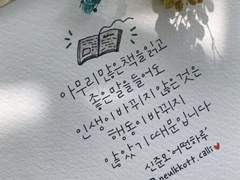 아무리 많은 책을 읽고
좋은 말을 들어도
인생이 바뀌지 않은것은
행동이 바뀌지
않았기 때문입니다
신준모 '어떤하루'
@newlkkott_calli